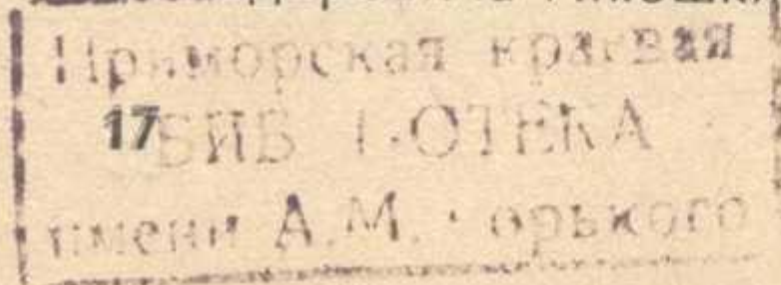 Приморская краевая
17
БИБЛИОТЕКА
имени А.М. Горького